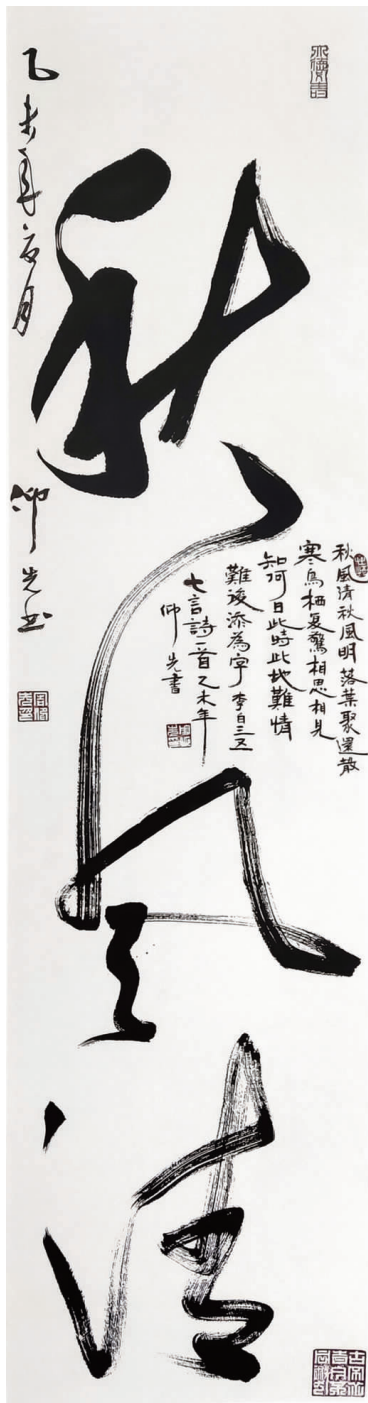 秋风清
秋風清秋風明落葉聚還散
寒鳥栖复驚相思相見
知何日此時此地難情
難後添為字李白三五
七言詩一首乙未年
仰先書
乙未年夏月
仰先书